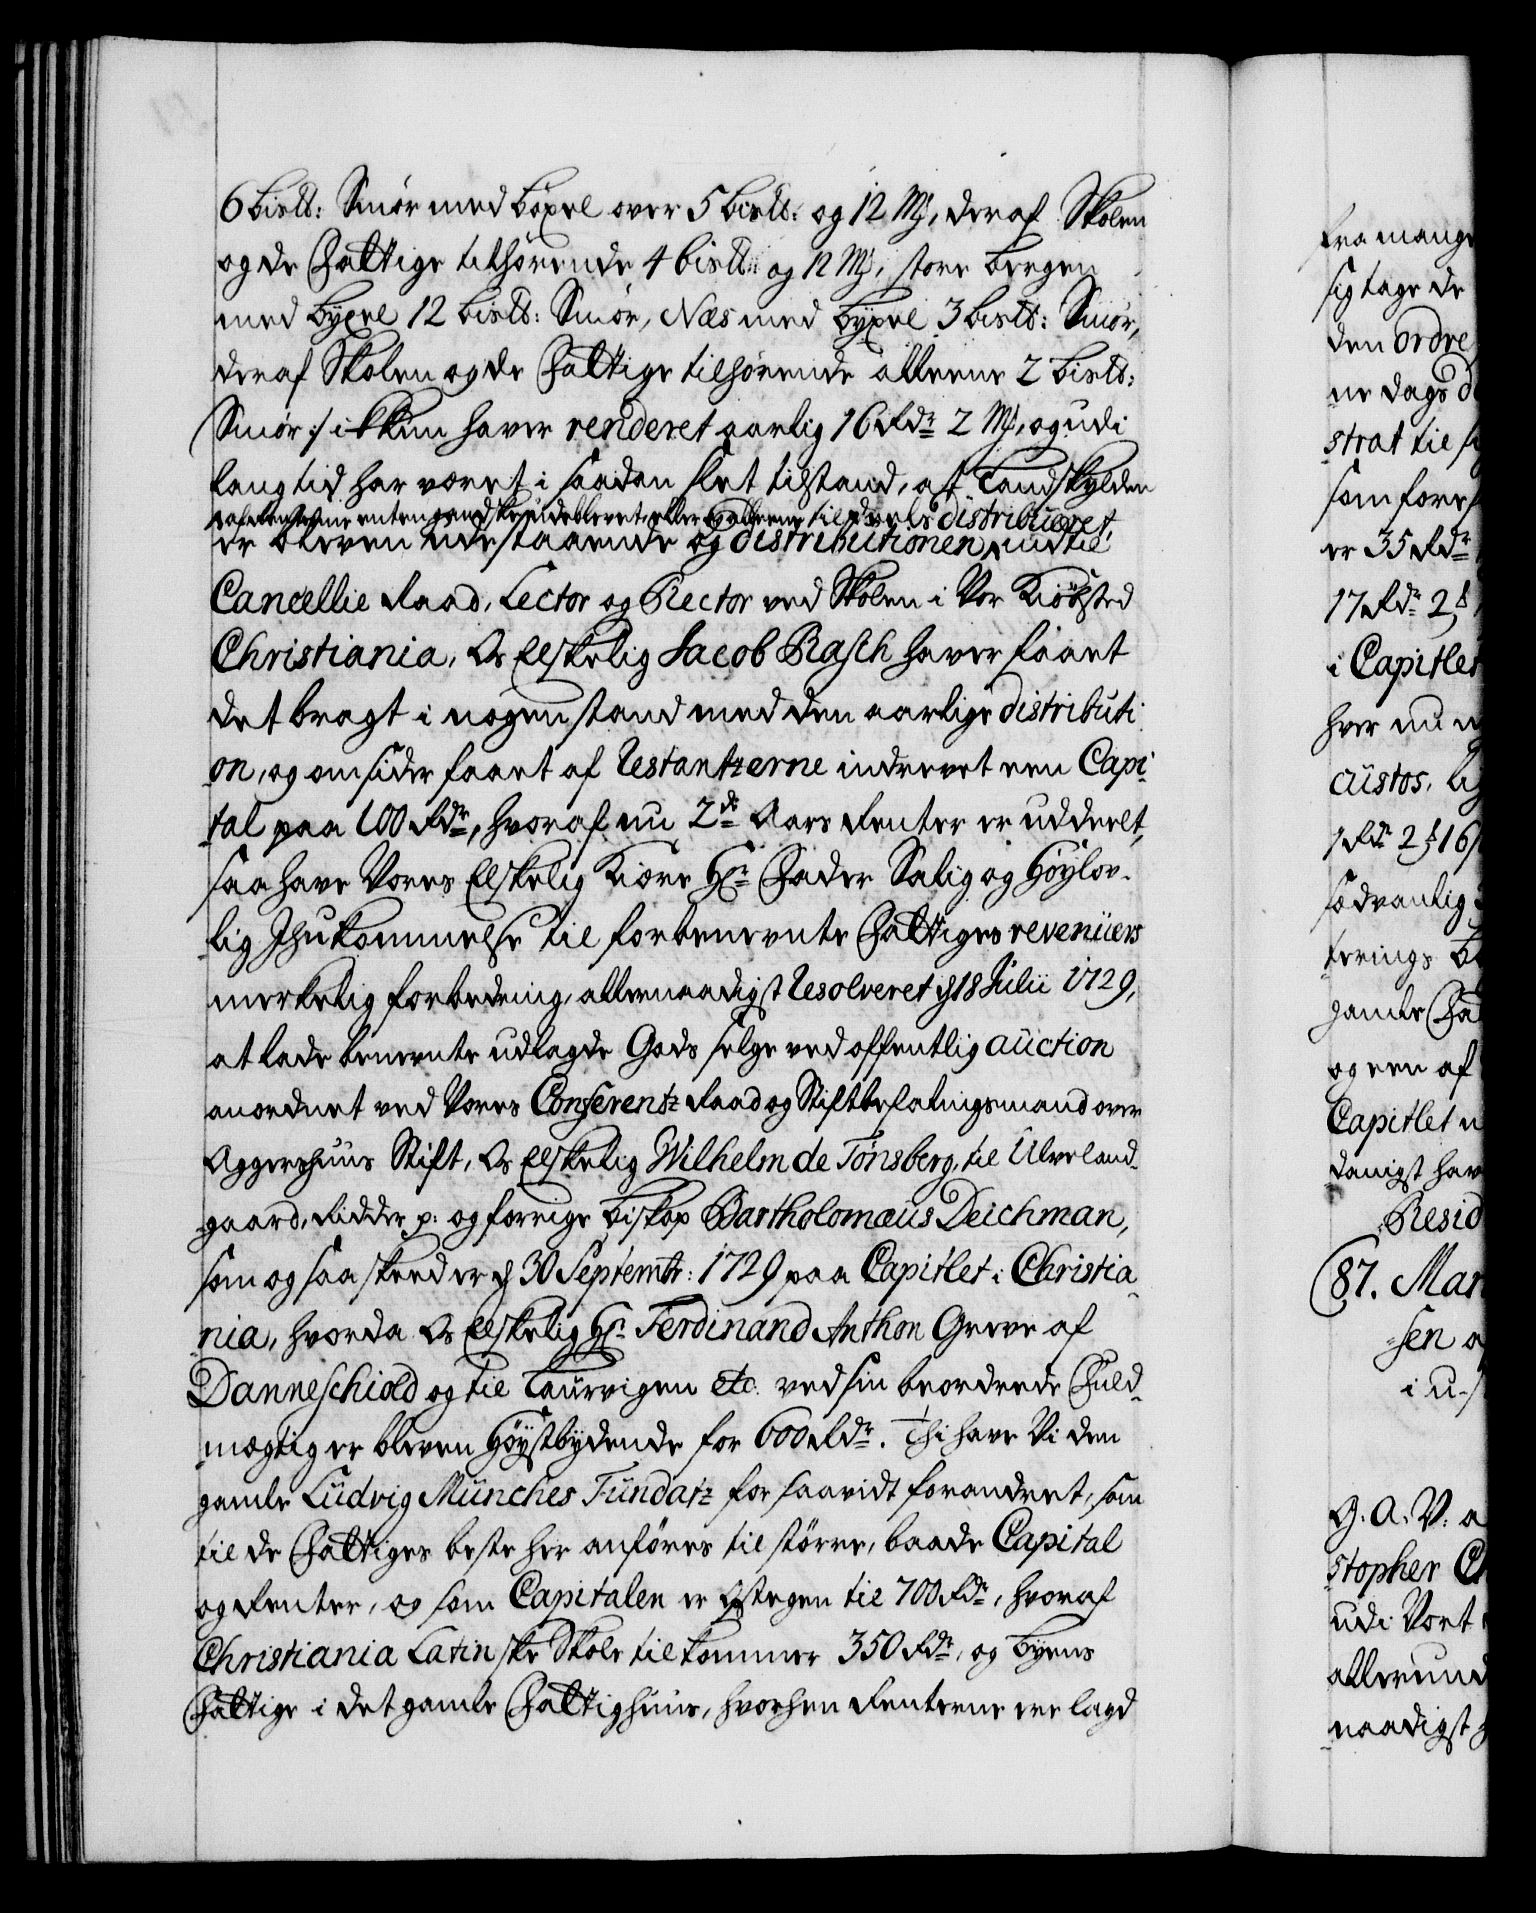 6 bisℓℓ: Smör med böxel over 5 bisℓℓ: og 12 Mk, deraf Skolen
og de Fattige tilhörende 4 bisℓℓ: og 12 Mk, store Bergen
med byxel 12 bisℓℓ: Smör, Næs med byxel 3 bisℓℓ: Smör,
deraf Skolen og de Fattige tilhörende alleene 2 bisℓℓ:
Smör :/ ikkun haver renderet aarlig 16 Rdr 2 Mk, og udi
lang tid har været i saadan slet tilstand, at Landskylden
er bleven udestaaende og distributionen, indtil
af Renterne enten gandske udeblevet, eller alleene til deels distribueret,
Cancellie Raad, Lector og Rector ved Skolen i Vor Kiöbsted
Christiania, Os Elskelig Jacob Rasch haver faaet
det bragt i nogen stand med den aarlige distributi-
on, og omsider faaet af Restantzerne indrevet een Capi-
tal paa 100 Rdr, hvoraf nu 2de Aars Renter er uddeelt,
saa have Vores Elskelig Kiære Hr Fader Salig og Höylov-
lig Ihukommelse til forbenevnte Fattiges revenüers
merkelig forbedring, allernaadigst Resolveret d 18 Julii 1729,
at lade benevnte udlagde Gods selge ved offentlig auction
anordnet ved Vores Conferentz Raad og Stiftbefalingsmand over
Aggershuus Stift, Os Elskelig Wilhelm de Tönsberg, til Ulveland-
gaard, Ridder p: og forrige Biskop Bartholomæus Deichman,
som og saa skeed er d 30 Septembr: 1729 paa Capitlet i Christia-
nia, hvorda Os Elskelig Hr Ferdinand Anthon Greve af
Danneschiold og til Laurvigen etc. ved sin beordrede Fuld-
mægtig er bleven Höystbydende for 600 Rdr. Thi have Vi den
gamle Ludvig Munches Fundatz for saavidt forandret, som
til de Fattiges beste her anföres til större, baade Capital
og Renter, og som Capitalen er stegen til 700 Rdr, hvoraf
Christiania Latinske Skole tilkommer 350 Rdr, og Byens
Fattige i det gamle Fattighuus, hvorhen Renterne ere lagd
fra mange
sig tage de
den ordre
ne dags
strat til
som fore
er 35 Rdr
17 Rdr 2
i Capitlet
hver nu
custos,
1 Rdr 2 16
sædvanlig
terings
gamle
og een af
Capitlet
danigst hav
Resid
87. Mar
sen
i u
G. A. V:
stopher
udi Vort
allerund
naadigst